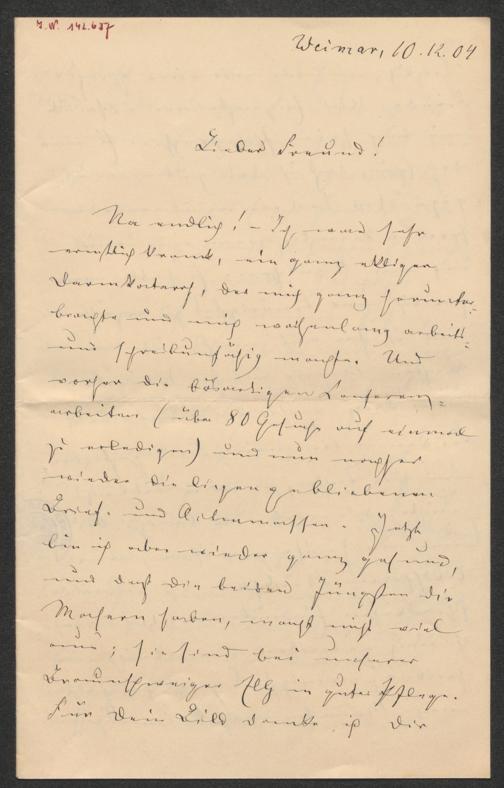 J.N. 141.627
Weimar, 10.12.04
Lieber Freund!
Na endlich! – Ich war sehr
ernstlich krank, ein ganz ekliger
Darmkatarrh, der mich ganz herunter-
brachte und mich wochenlang arbeits-
und schreibunfähig machte. Und
vorher die bösartigen Conferenz-
arbeiten (über 80 Gesuche auf einmal
zu erledigen) und nun nachher
wieder die liegengebliebenen
Brief- und Actenmassen. Jetzt
bin ich aber wieder ganz gesund,
und daß die beiden Jüngsten die
Masern haben, macht nicht viel
aus; sie sind bei unserer
Braunschweiger Elly in guter Pflege.
Für Dein Bild danke ich Dir